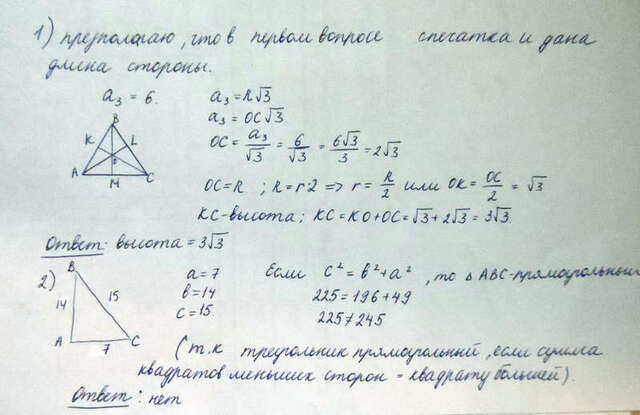 1) предполагаю, что в первом вопросе спечатка и дана
длина стороны.
a₃ = 6.
a₃ = R√3
a₃ = OC√3
OC = a₃/√3 = 6/√3 = 6√3/3 = 2√3
B
K L
A M C
OC = R ; R = r·2 => r = R/2 или OK = OC/2 = √3
KC - высота ; KC = KO + OC = √3 + 2√3 = 3√3.
Ответ: высота = 3√3
2)
B
14 15
A 7 C
a = 7
b = 14
c = 15.
Если c² = b² + a², то △ABC - прямоугольный
225 = 196 + 49
225 ≠ 245
(т.к треугольник прямоугольный, если сумма
квадратов меньших сторон = квадрату большей).
Ответ: нет